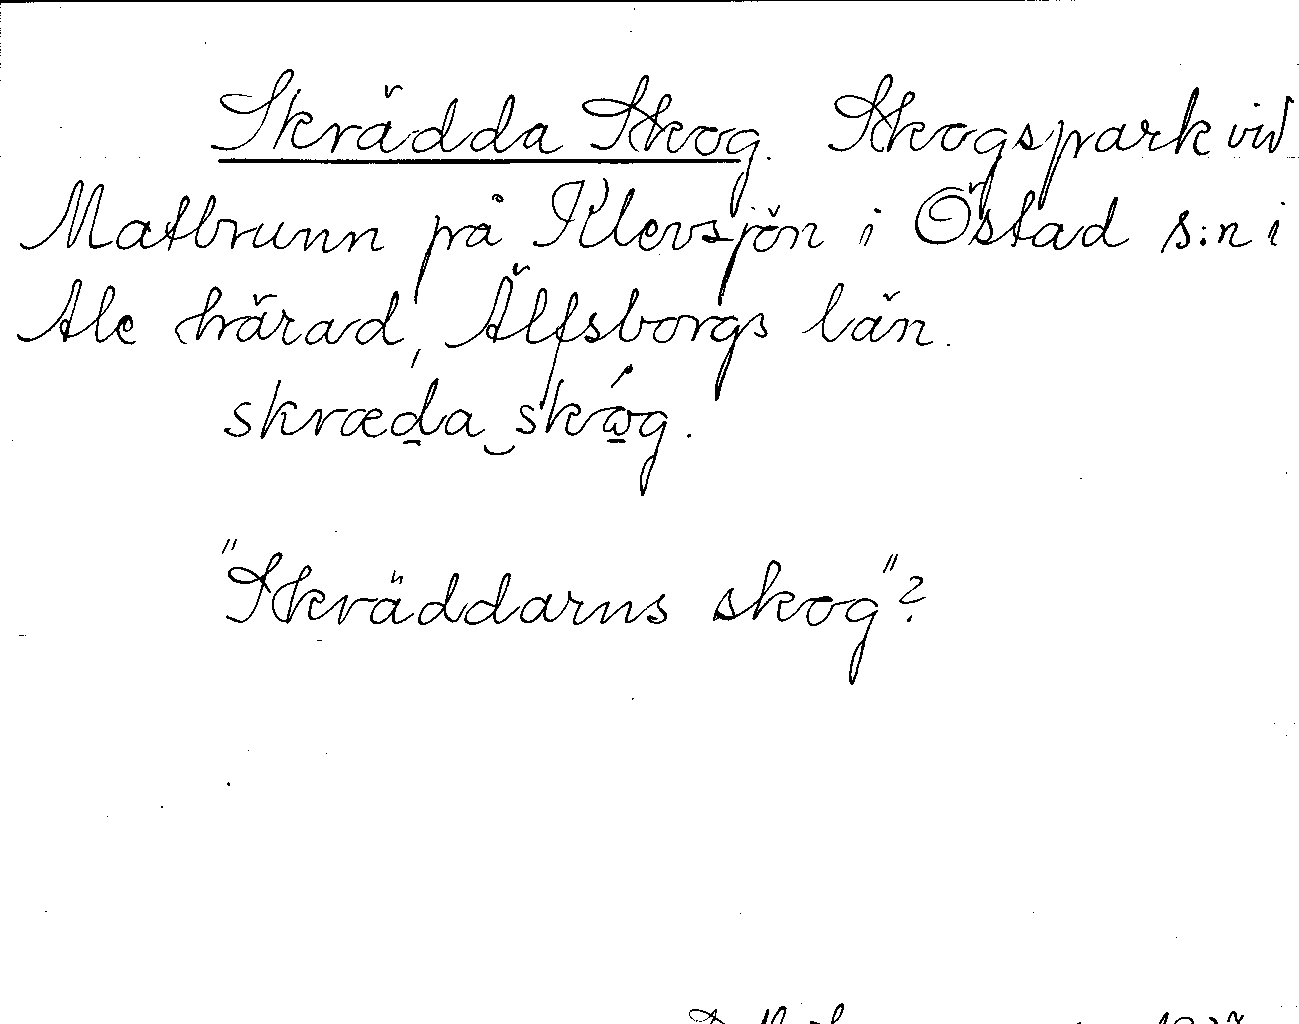 Skrädda Skog. Skogspark vid
Matbrunn på Klevsjön i Östad s:n i
Ale härad, Älfsborgs län.
skræda skωg.
"Skräddarns skog"?